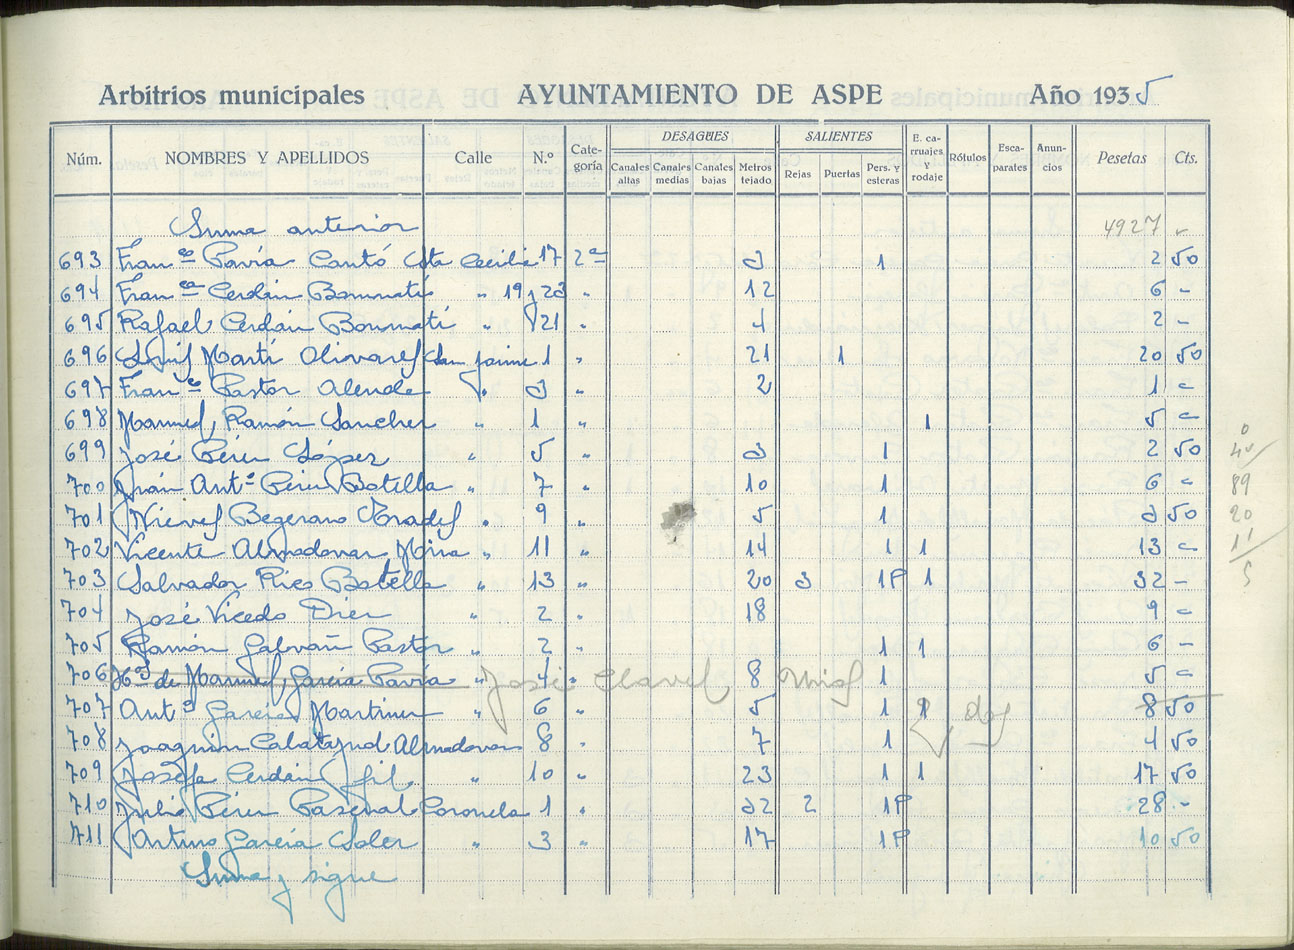 Arbitrios municipales AYUNTAMIENTO DE ASPE Año 1935
Núm. NOMBRES Y APELLIDOS Calle N.º Cate-goría DESAGÜES SALIENTES E. ca-rruajes y rodaje Rótulos Esca-parates Anun-cios Pesetas Cts.
Canales altas Canales medias Canales bajas Metros tejado Rejas Puertas Pers. y esteras
Suma anterior 4927 -
693 Fran.co Pavía Cantó Sta Cecilia 17 2ª 3 1 2 50
694 Fran.co Cerdán Bonmatí " 19 y 23 " 12 6 -
695 Rafael Cerdán Bonmatí " 21 " 4 2 -
696 Luis Martí Olivares San Jaime 1 " 21 1 20 50
697 Fran.co Pastor Alenda " 3 " 2 1 -
698 Manuel Ramón Sanchez " 1 " 1 5 -
699 José Pérez López " 5 " 3 1 2 50
700 Juán Ant.º Pérez Botella " 7 " 10 1 6 -
701 Nieves Begerano Prades " 9 " 5 1 3 50
702 Vicente Almodovar Mira " 11 " 14 1 1 13 -
703 Salvador Rico Botella " 13 " 20 3 1P 1 32 -
704 José Vicedo Diez " 2 " 18 9 -
705 Ramón Galvañ Pastor " 2 " 1 1 6 -
706 H.os de Manuel García Pavía " 4 " José Clavel 8 1 5 -
707 Ant.º García Martinez " 6 " 5 1 2 dos 8 50
708 Joaquin Calatayud Almodovar 8 " 7 1 4 50
709 Josefa Cerdán Gil " 10 " 23 1 1 17 50
710 Julio Pérez Pascual Coronela 1 " 32 2 1P 28 -
711 Arturo García Soler " 3 " 17 1P 10 50
Suma y sigue
0
40
89
20
11
5